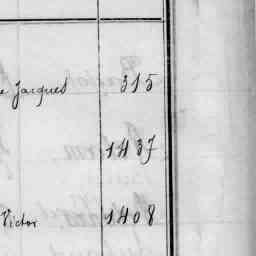 e Jacques 315
1437
Victor 1408